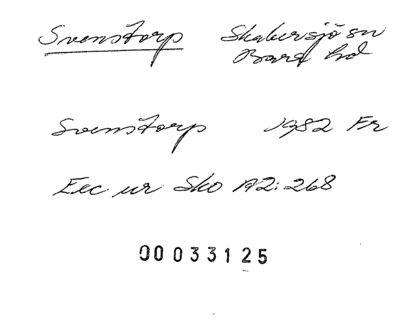 Svenstorp Skabersjö sn
Bara hd
Svenstorp 1982 Fr
Exc ur Sko A2:268
00033125